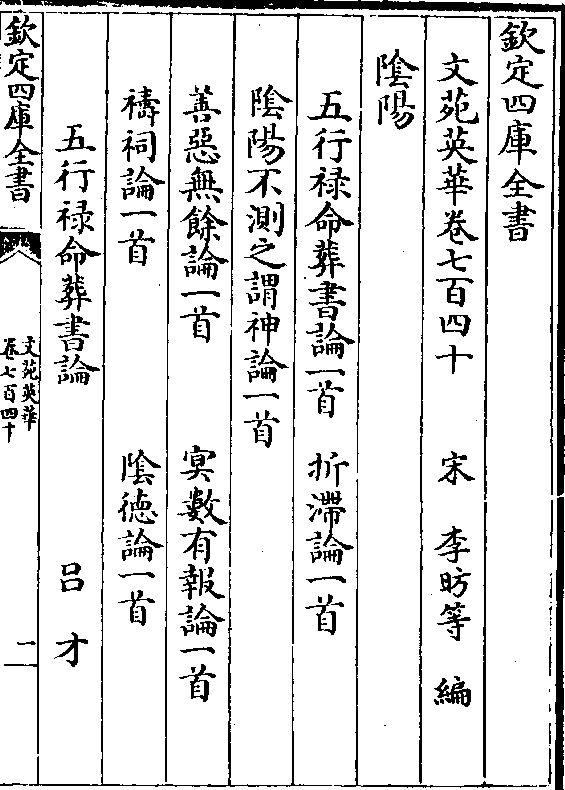 欽定四庫全書
文苑英華卷七百四十　宋　李昉等　編
陰陽
五行禄命葬書論一首　折滯論一首
陰陽不測之謂神論一首
善惡無餘論一首　冥數有報論一首
禱祠論一首　陰德論一首
五行禄命葬書論　吕才
欽定四庫全書
文苑英華
卷七百四十
二